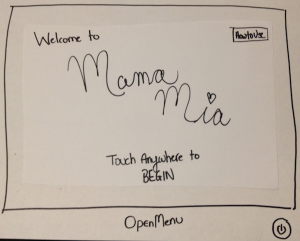 Welcome to
How to Use
Mama
Mia
Touch Anywhere to
BEGIN
OpenMenu